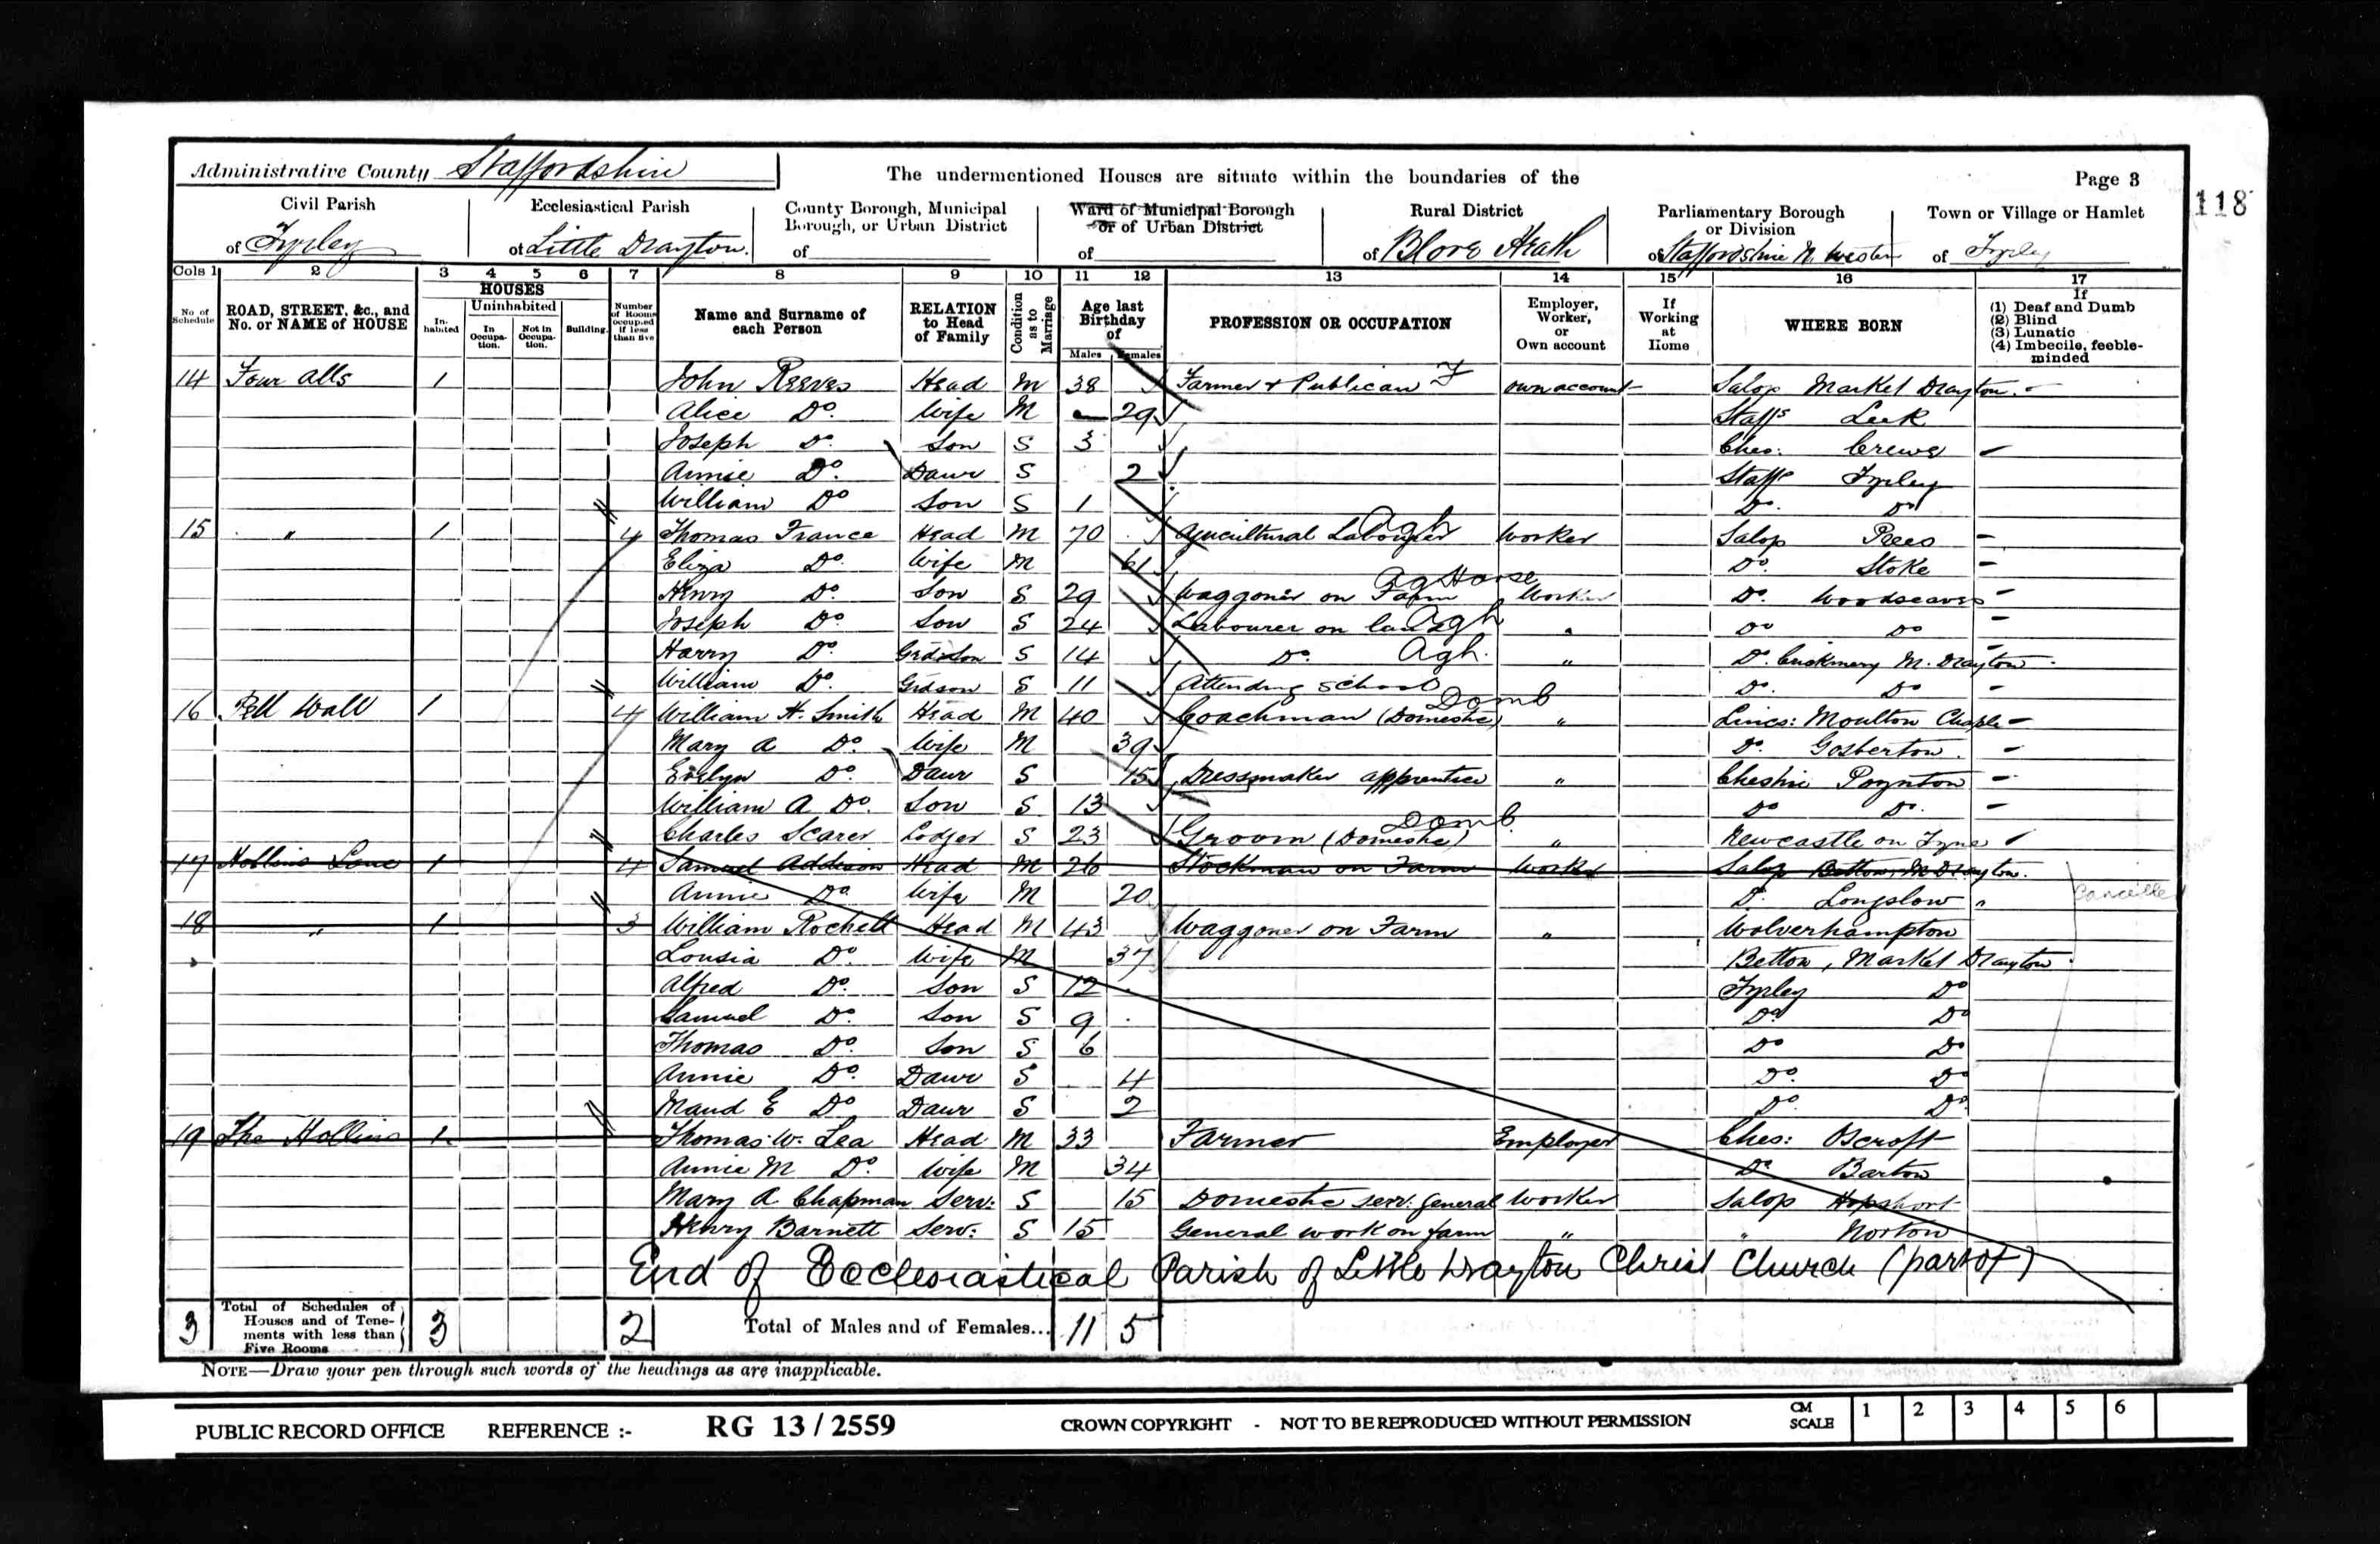 Administrative County Staffordshire
The undermentioned Houses are situate within the boundaries of the
Page 3
118
Civil Parish
of Tyrley
Ecclesiastical Parish
of Little Drayton.
County Borough, Municipal
Borough, or Urban District
of
Ward of Municipal Borough
or of Urban District
of
Rural District
of Blore Heath
Parliamentary Borough
or Division
of Staffordshire N. Western
Town or Village or Hamlet
of Tyrley
Cols 1 2 3 4 5 6 7 8 9 10 11 12 13 14 15 16 17
No of Schedule
ROAD, STREET, &c., and No. or NAME of HOUSE
HOUSES
In-habited
Uninhabited
In Occupa-tion.
Not in Occupa-tion.
Building
Number of Rooms occupied if less than five
Name and Surname of each Person
RELATION to Head of Family
Condition as to Marriage
Age last Birthday of
Males Females
PROFESSION OR OCCUPATION
Employer, Worker, or Own account
If Working at Home
WHERE BORN
If
(1) Deaf and Dumb
(2) Blind
(3) Lunatic
(4) Imbecile, feeble-minded
14 Four Alls 1 John Reeves Head M 38 Farmer & Publican F own account Salop Market Drayton
Alice Do. Wife M 29 Staffs Leek
Joseph Do. Son S 3 Ches: Crewe
Annie Do. Daur S 2 Staffs Tyrley
William Do Son S 1 Do. Do
15 " 1 4 Thomas France Head M 70 Agricultural Labourer Agh Worker Salop Prees
Eliza Do. Wife M 61 Do. Stoke
Henry Do. Son S 29 Waggoner on Farm Ag Horse Worker Do. Woodseaves
Joseph Do. Son S 24 Labourer on land Agh " Do Do
Harry Do. Grdson S 14 Do. Agh. " Do. M. Drayton
William Do. Gidson S 11 Attending School Do. Do
16 Pell Wall 1 4 William H. Smith Head M 40 Coachman (Domestic) Domb " Lincs: Moulton Chaple
Mary A Do. Wife M 39 Do. Gosberton.
Evelyn Do. Daur S 15 Dressmaker apprentice " Cheshire Poynton
William A Do. Son S 13 Do Do.
Charles Scarer Lodger S 23 Groom (Domestic) Domb " Newcastle on Tyne
17 Hollins Lane 1 4 Samuel Addison Head M 26 Stockman on Farm Worker Salop Betton, M Drayton.
Annie Do Wife M 20 D. Longslow "
Cancelled
18 " 1 3 William Rochell Head M 43 Waggoner on Farm " Wolverhampton
Lousia Do. Wife M 37 Betton, Market Drayton
Alfred Do. Son S 12 Tyrley Do
Samuel Do. Son S 9 Do Do
Thomas Do. Son S 6 Do Do
Annie Do. Daur S 4 Do. Do
Maud E Do Daur S 2 Do. Do
19 The Hollins 1 Thomas W. Lea Head M 33 Farmer Employer Ches: Oscroft
Annie M Do. Wife M 34 Do Barton
Mary A Chapman Serv: S 15 Domestic serv: general Worker Salop
Henry Barnett Serv: S 15 General work on farm " " Norton
End of Ecclesiastical Parish of Little Drayton Christ Church (part of)
3 Total of Schedules of Houses and of Tene-ments with less than Five Rooms 3 2 Total of Males and of Females... 11 5
NOTE—Draw your pen through such words of the headings as are inapplicable.
PUBLIC RECORD OFFICE REFERENCE :- RG 13 / 2559 CROWN COPYRIGHT - NOT TO BE REPRODUCED WITHOUT PERMISSION CM SCALE 1 2 3 4 5 6